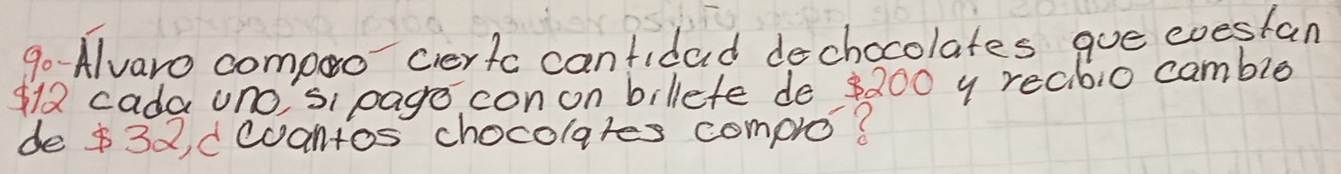 9.-Álvaro compro cierta cantidad de chocolates que cuestan
$12 cada uno, si pagó con un billete de $200 y recibio cambio
de $32, ¿cuantos chocolates compró?